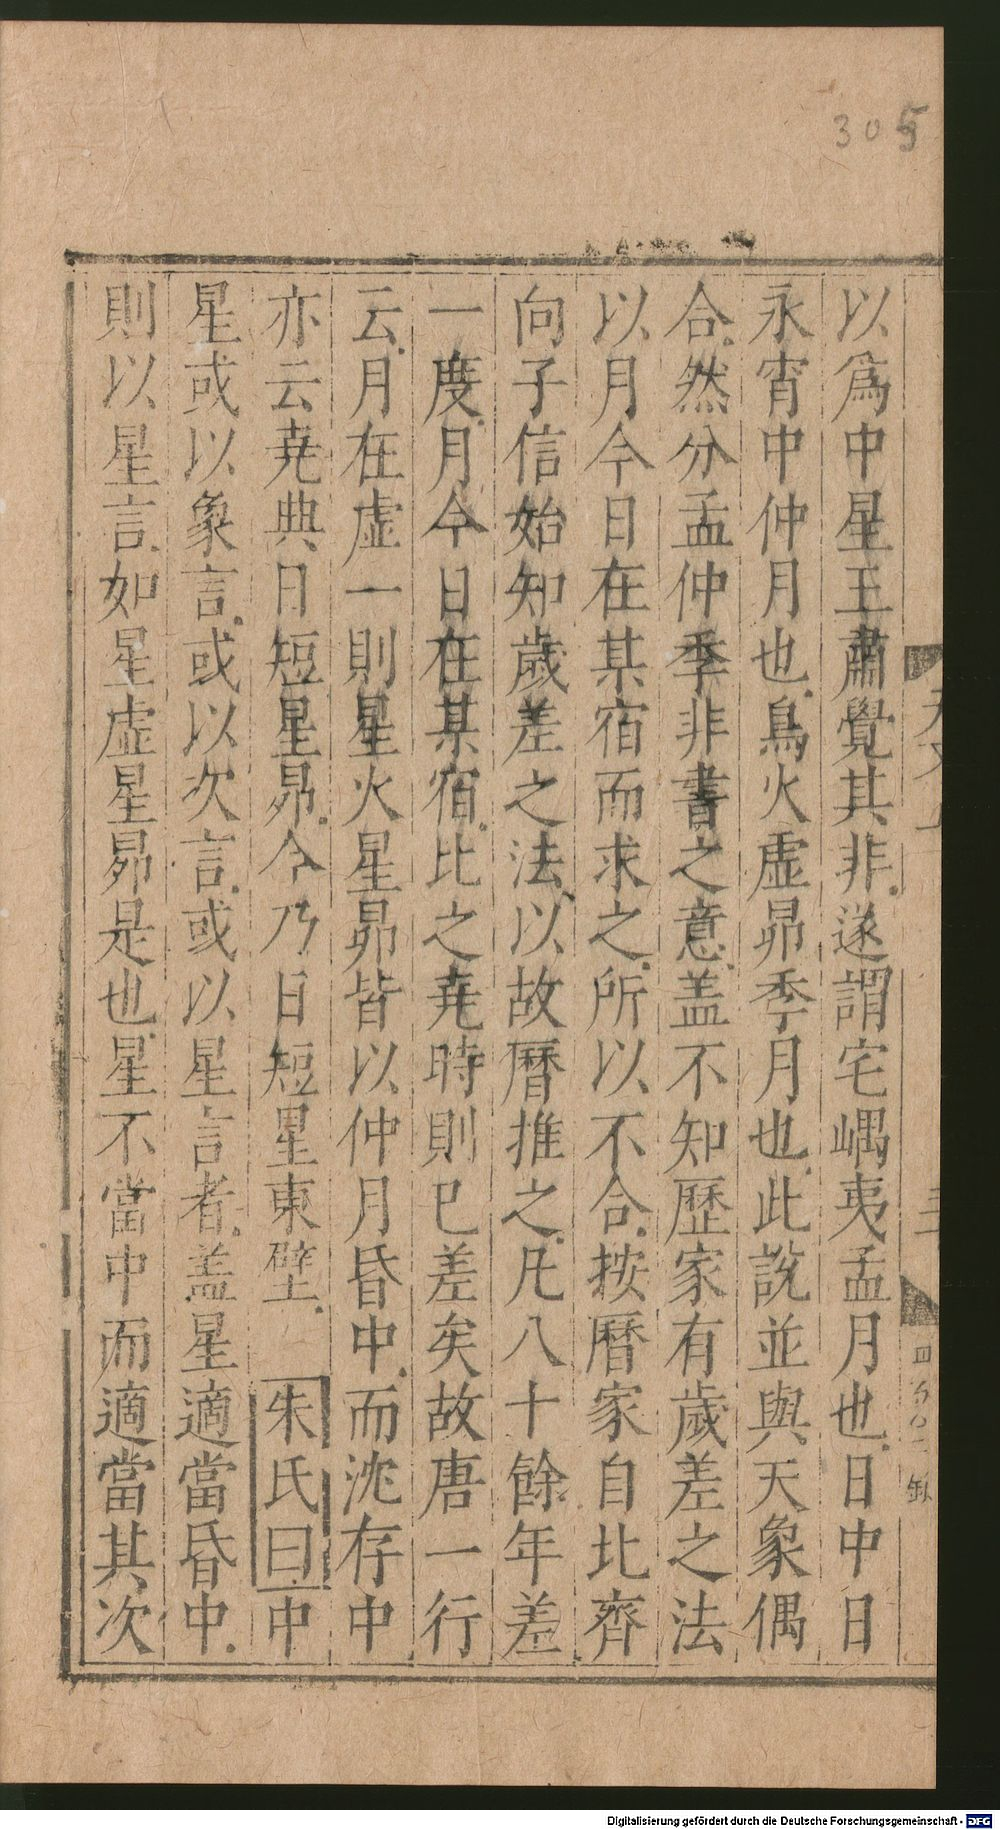 305
以爲中星王肅覺其非遂謂宅嵎夷孟月也日中日
永宵中仲月也鳥火虛昴季月也此說並與天象偶
合然分孟仲季非書之意盖不知歷家有歲差之法
以月令日在某宿而求之所以不合按曆家自北齊
向子信始知歲差之法以故曆推之凡八十餘年差
一度月令日在某宿比之堯時則已差矣故唐一行
云月在虛一則星火星昴皆以仲月昏中而沈存中
亦云堯典日短星昴今乃日短星東壁 朱氏曰中
星或以象言或以次言或以星言者盖星適當昏中
則以星言如星虛星昴是也星不當中而適當其次
Digitalisierung gefördert durch die Deutsche Forschungsgemeinschaft - DFG